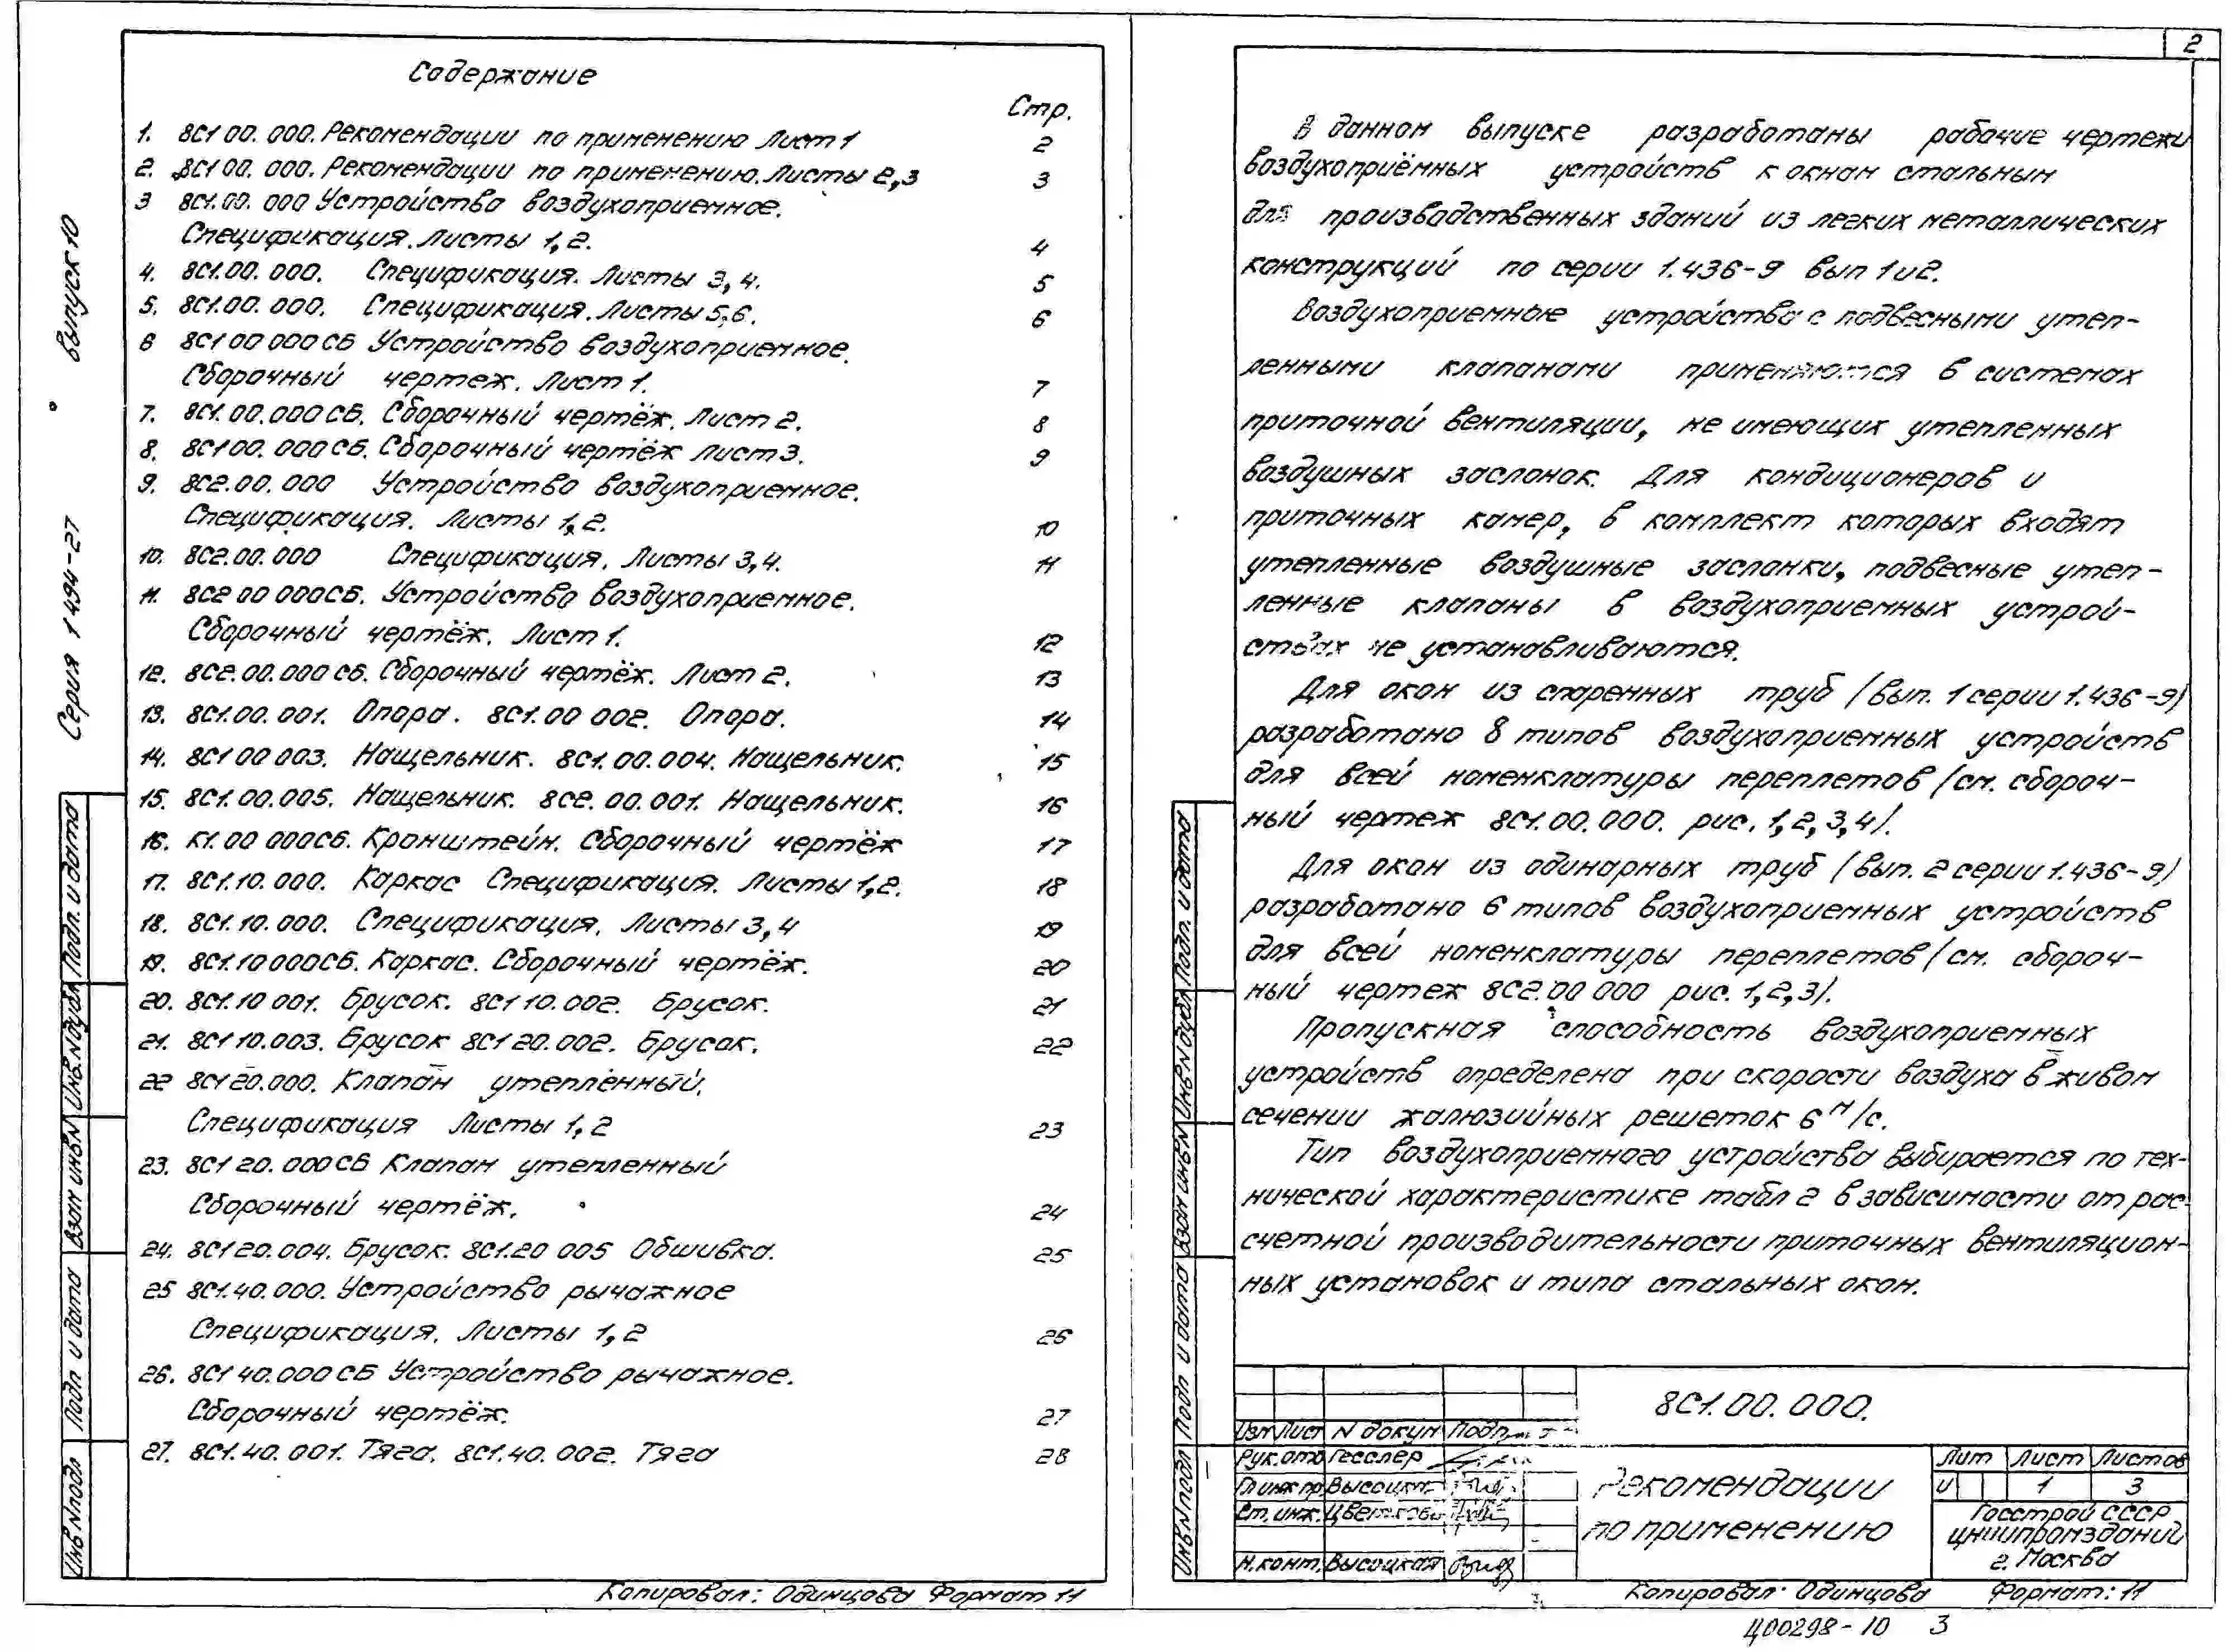 Содержание
Стр.
1. 8С1 00. 000. Рекомендации по применению Лист 1 2
2. 8С1 00. 000. Рекомендации по применению. Листы 2,3 3
3 8С1. 00. 000 Устройство воздухоприемное.
Спецификация. Листы 1, 2. 4
4. 8С1.00. 000. Спецификация. Листы 3, 4. 5
5. 8С1.00. 000. Спецификация. Листы 5, 6. 6
6 8С1 00 000 СБ Устройство воздухоприемное.
Сборочный чертеж. Лист 1. 7
7. 8С1. 00. 000 СБ. Сборочный чертёж. Лист 2. 8
8. 8С1 00. 000 СБ. Сборочный чертёж Лист 3. 9
9. 8С2. 00. 000 Устройство воздухоприемное.
Спецификация. Листы 1, 2. 10
10. 8С2. 00. 000 Спецификация. Листы 3, 4. 11
11. 8С2 00 000СБ. Устройство воздухоприемное.
Сборочный чертёж. Лист 1. 12
12. 8С2. 00. 000 СБ. Сборочный чертёж. Лист 2. 13
13. 8С1. 00. 001. Опора. 8С1. 00 002. Опора. 14
14. 8С1 00 003. Нащельник. 8С1. 00. 004. Нащельник. 15
15. 8С1. 00. 005. Нащельник. 8С2. 00. 001. Нащельник. 16
16. К1. 00 000СБ. Кронштейн. Сборочный чертёж 17
17. 8С1. 10. 000. Каркас Спецификация. Листы 1, 2. 18
18. 8С1. 10. 000. Спецификация. Листы 3, 4 19
19. 8С1. 10 000СБ. Каркас. Сборочный чертёж. 20
20. 8С1. 10 001. Брусок. 8С1 10. 002. Брусок. 21
21. 8С1 10. 003. Брусок 8С1 20. 002. Брусок. 22
22 8С1 20. 000. Клапан утеплённый.
Спецификация Листы 1, 2 23
23. 8С1 20. 000 СБ Клапан утепленный
Сборочный чертёж. 24
24. 8С1 20. 004. Брусок. 8С1. 20 005 Обшивка. 25
25 8С1. 40. 000. Устройство рычажное
Спецификация. Листы 1, 2 26
26. 8С1 40. 000 СБ Устройство рычажное.
Сборочный чертёж. 27
27. 8С1. 40. 001. Тяга. 8С1. 40. 002. Тяга 28
Серия 1 494-27 выпуск 10
Подп. и дата
Инв.N дубл
Взам инв N
Подп и дата
Инв N подл
Копировал: Одинцова Формат 11
2
В данном выпуске разработаны рабочие чертежи
воздухоприёмных устройств к окнам стальным
для производственных зданий из легких металлических
конструкций по серии 1.436-9 вып 1 и 2.
Воздухоприемные устройства с подвесными утеп-
ленными клапанами применяются в системах
приточной вентиляции, не имеющих утепленных
воздушных заслонок. Для кондиционеров и
приточных камер, в комплект которых входят
утепленные воздушные заслонки, подвесные утеп-
ленные клапаны в воздухоприемных устрой-
ствах не устанавливаются.
Для окон из спаренных труб (вып. 1 серии 1.436-9)
разработано 8 типов воздухоприемных устройств
для всей номенклатуры переплетов (см. сбороч-
ный чертеж 8С1. 00. 000. рис. 1, 2, 3, 4).
Для окон из одинарных труб (вып. 2 серии 1.436-9)
разработано 6 типов воздухоприемных устройств
для всей номенклатуры переплетов (см. сбороч-
ный чертеж 8С2. 00 000 рис. 1, 2, 3).
Пропускная способность воздухоприемных
устройств определена при скорости воздуха в живом
сечении жалюзийных решеток 6 м/с.
Тип воздухоприемного устройства выбирается по тех-
нической характеристике табл 2 в зависимости от рас-
счетной производительности приточных вентиляцион-
ных установок и типа стальных окон.
Подп. и дата
Инв N дубл
Взам инв N
Подп и дата
Инв N подл
8С1. 00. 000.
Изм Лист N докум Подп.
Рук. отд Гесслер
Гл инж пр Высоцк
Ст. инж. Цветкова
Н. конт. Высоцкая
Рекомендации
по применению
Лит Лист Листов
И 1 3
Госстрой СССР
ЦНИИпромзданий
г. Москва
Копировал: Одинцова Формат: 11
Ц00298-10 3